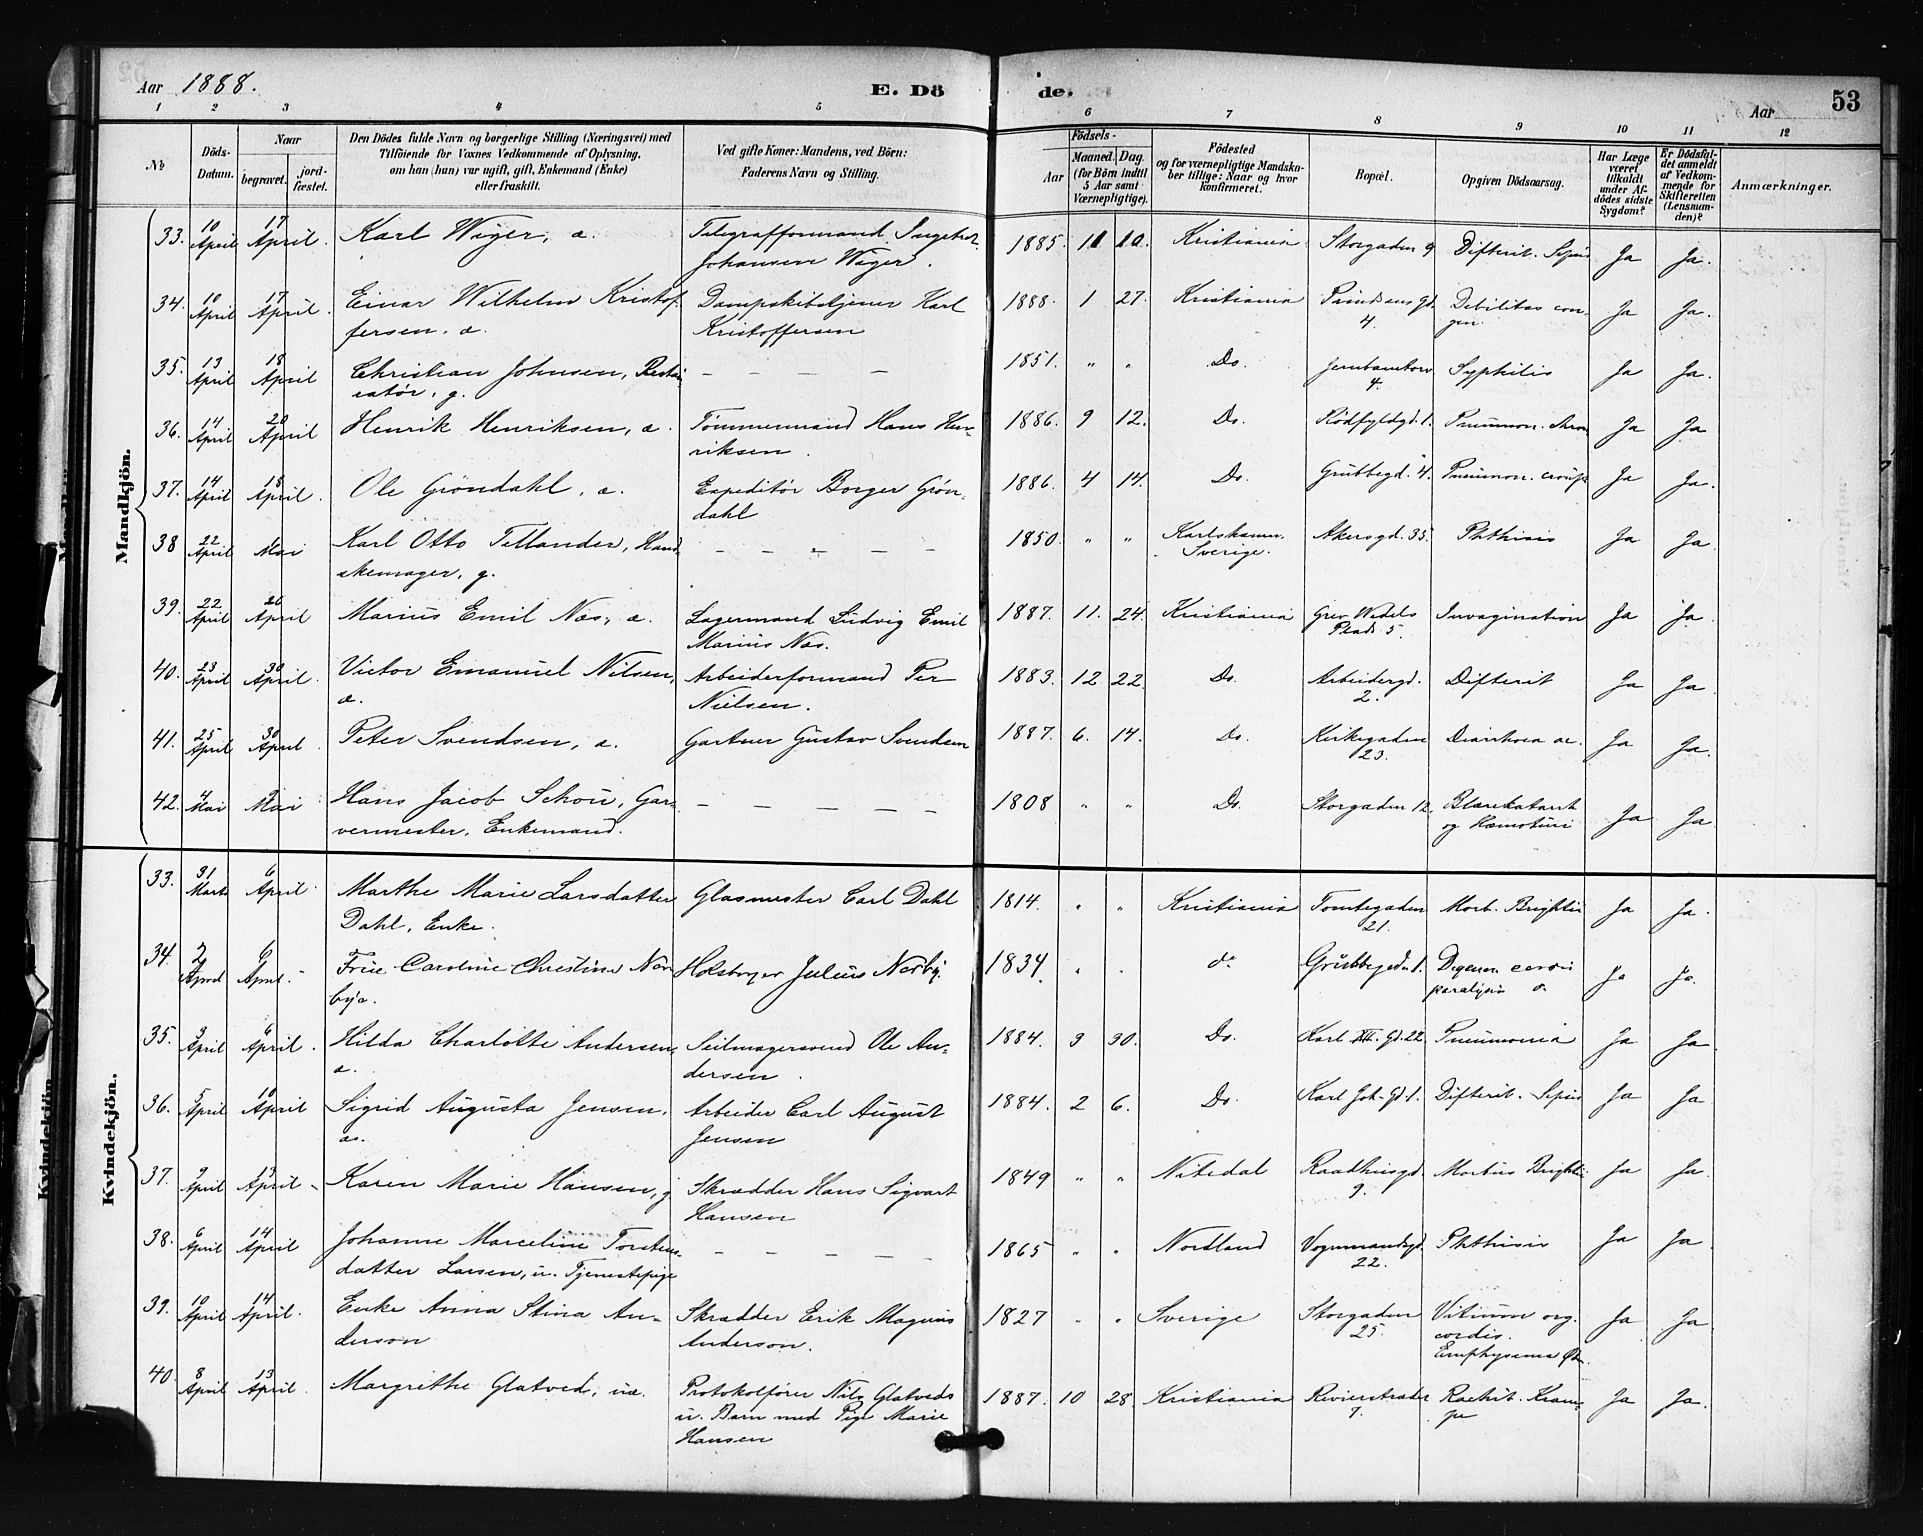 Aar 1888. E. Dö de. Aar 53
1 2 3 4 5 6 7 8 9 10 11 12
№ Döds-Datum. Naar begravet. jord-fæstet. Den Dödes fulde Navn og borgerlige Stilling (Næringsvei) med Tilföiende for Voxnes Vedkommende af Oplysning, om han (hun) var ugift, gift, Enkemand (Enke) eller fraskilt. Ved gifte Koner: Mandens, ved Börn: Faderens Navn og Stilling. Födsels- Aar Maaned. Dag. (for Börn indtil 5 Aar samt Værnepligtige). Födested og for værnepligtige Mandskaber tillige: Naar og hvor konfirmeret. Bopæl. Opgiven Dödsaarsag. Har Læge været tilkaldt under Afdödes sidste Sygdom? Er Dödsfaldet anmeldt af Vedkommende for Skifteretten (Lensmanden)? Anmærkninger.
Mandkjön.
33. 10 April 17 April. Karl Wiger, a. Telegrafformand Ingebret Johansen Wiger. 1885. 11 10. Kristiania Storgaden 9 Difterit. Sepsis Ja Ja.
34. 10 April 17 April. Einar Wilhelm Kristoffersen. a. Dampskibstjener Karl Kristoffersen 1888. 1 27. Kristiania 4. Debilitas congen. Ja Ja.
35. 13 April 18 April Christian Johnsen, Restauratör, g. — — — — 1851. " " Do. Jernbanetorv 4. Syphilis Ja Ja.
36. 14 April 20 April Henrik Henriksen, a. Tömmermand Hans Henriksen. 1886. 9 12. Do. Rödfyldgd. 1. Pneumon. Ja Ja
37. 14 April 18 April. Ole Gröndahl, a. Expeditör Borger Gröndahl 1886. 4 14. Do. Grubbegd. 4. Pneumon. croup. Ja Ja.
38 22 April Mai Karl Otto Tellander, Handskemager, g. — — — — — 1850. " " Karlshamn. Sverige. Akersgd. 35. Phthisis Ja Ja
39. 22 April 26 April Marius Emil Næs, a. Lagermand Ludvig Emil Marius Næs. 1887. 11. 24. Kristiania Grev Wedels Plads 5. Invagination Ja Ja.
40. 23 April 30 April. Victor Emanuel Nilsen, a. Arbeiderformand Per Nielsen. 1883. 12 22. Do. Arbeidergd. 2. Difterit Ja Ja.
41. 25 April 30 April Peter Svendsen, a. Gartner Gustav Svendsen 1887. 6. 14. Do. Kirkegaden 23. Diarrhoea ac. Ja Ja.
42. 4 Mai 9 Mai Hans Jacob Schou, Garvermester, Enkemand. — — — — — 1808 " " Do. Storgaden 12. Blærekatarrh og Hæmaturi Ja Ja.
Kvindekjön.
33. 31 Marts 6 April. Marthe Marie Larsdatter Dahl, Enke. Glasmester Carl Dahl 1814. " " Kristiania Tomtegaden 21. Morb. Brightii Ja Ja.
34. 2 April 6 April. Frue Caroline Christine Nørby. Julius Nørby. 1834. " " do Grubbegdn 1. Degener. cordis paralysis Ja Ja.
35. 3 April 6 April. Hilda Charlotte Andersen, a. Seilmagersvend Ole Andersen. 1884. 9 30. Do. Karl XII. Gd. 22. Pneumonia Ja Ja.
36. 5 April 10 April Sigrid Augusta Jensen. a. Arbeider Carl August Jensen 1884. 2 6. Do. Karl Joh. Gd. 1. Difterit. Sepsis Ja Ja.
37. 9 April 13 April. Karen Marie Hansen, g Skrædder Hans Sigvart Hansen 1849 " " Nitedal Raadhusgd. 9. Morbus Brightii Ja Ja.
38. 6 April 14 April Johanne Marceline Torstensdatter Larsen, u. Tjenestepige — — — — 1865 " " Nordland Vognmandsgd. 22. Phthisis Ja Ja.
39. 10 April 14 April. Enke Anna Stina Anderson Skrædder Erik Magnus Anderson. 1827 " " Sverige Storgaden 25. Vitium org. cordis. Emphysema Ja Ja.
40. 8 April 13 April. Margrethe Glatved, ua. Protokolförer Nils Glatveds u. Barn med Pige Marie Hansen 1887. 10 28 Kristiania Revierstrædet 7. Rachit. Krampe Ja Ja.